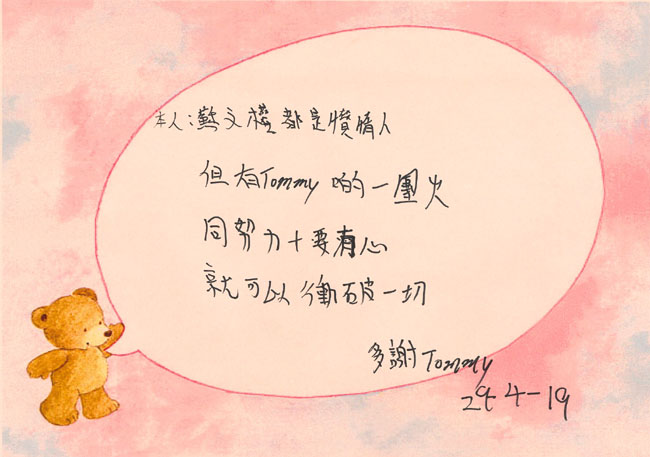 本人:蘇文櫻都是憤情人
但有Tommy 啲的一團火
同努力+要有心
就可以衝破一切
多謝Tommy
29-4-19